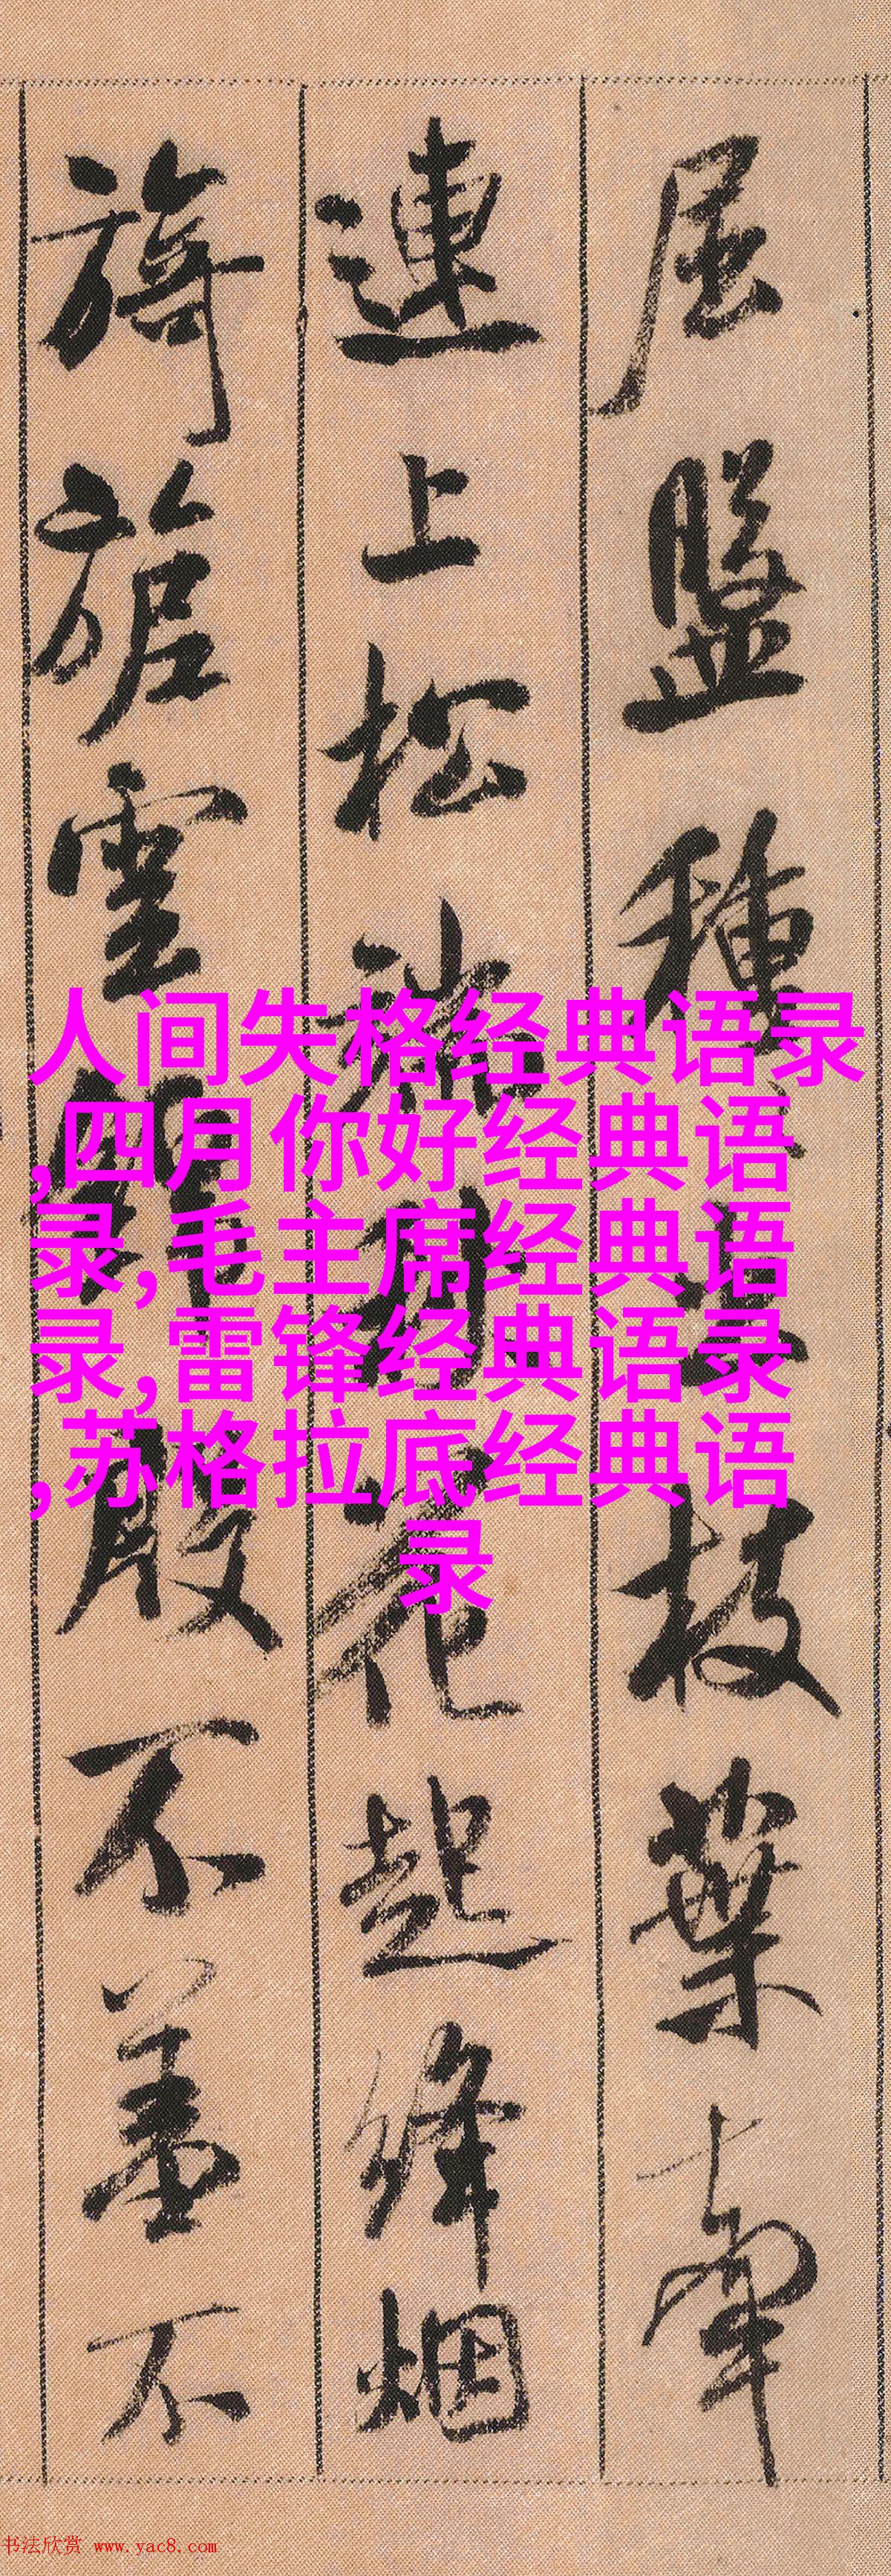 屈盤種々出枝葉牽
連上松端秋花起絳烟
旖旎雲錦殷不羞不
人间失格经典语录
,四月你好经典语
录,毛主席经典语
录,雷锋经典语录
,苏格拉底经典语
录
书法欣赏 www.yac8.com